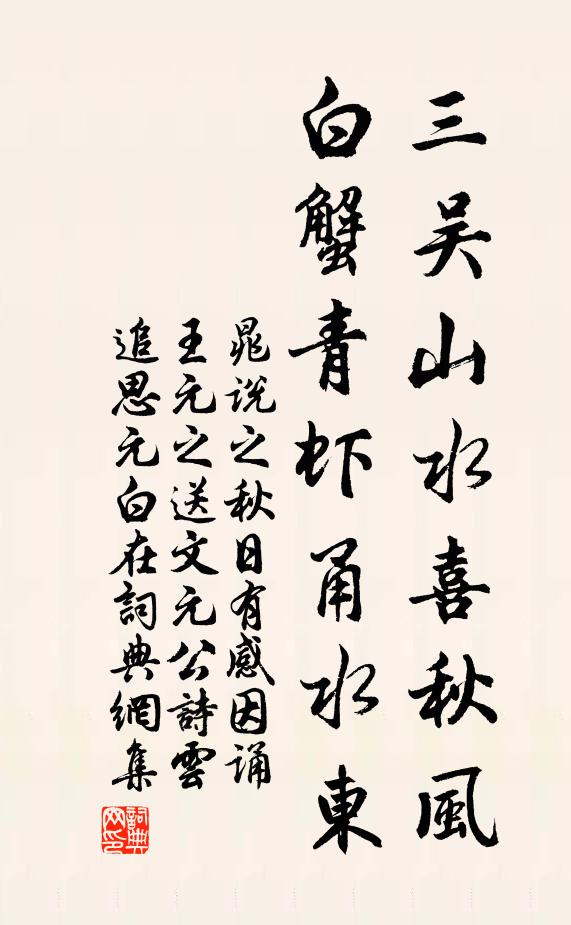 三吴山水喜秋風
白蟹青虾甬水東
晁説之秋日有感因诵
王元之送文元公詩雲
追思元白在詞典網集
詞典網印